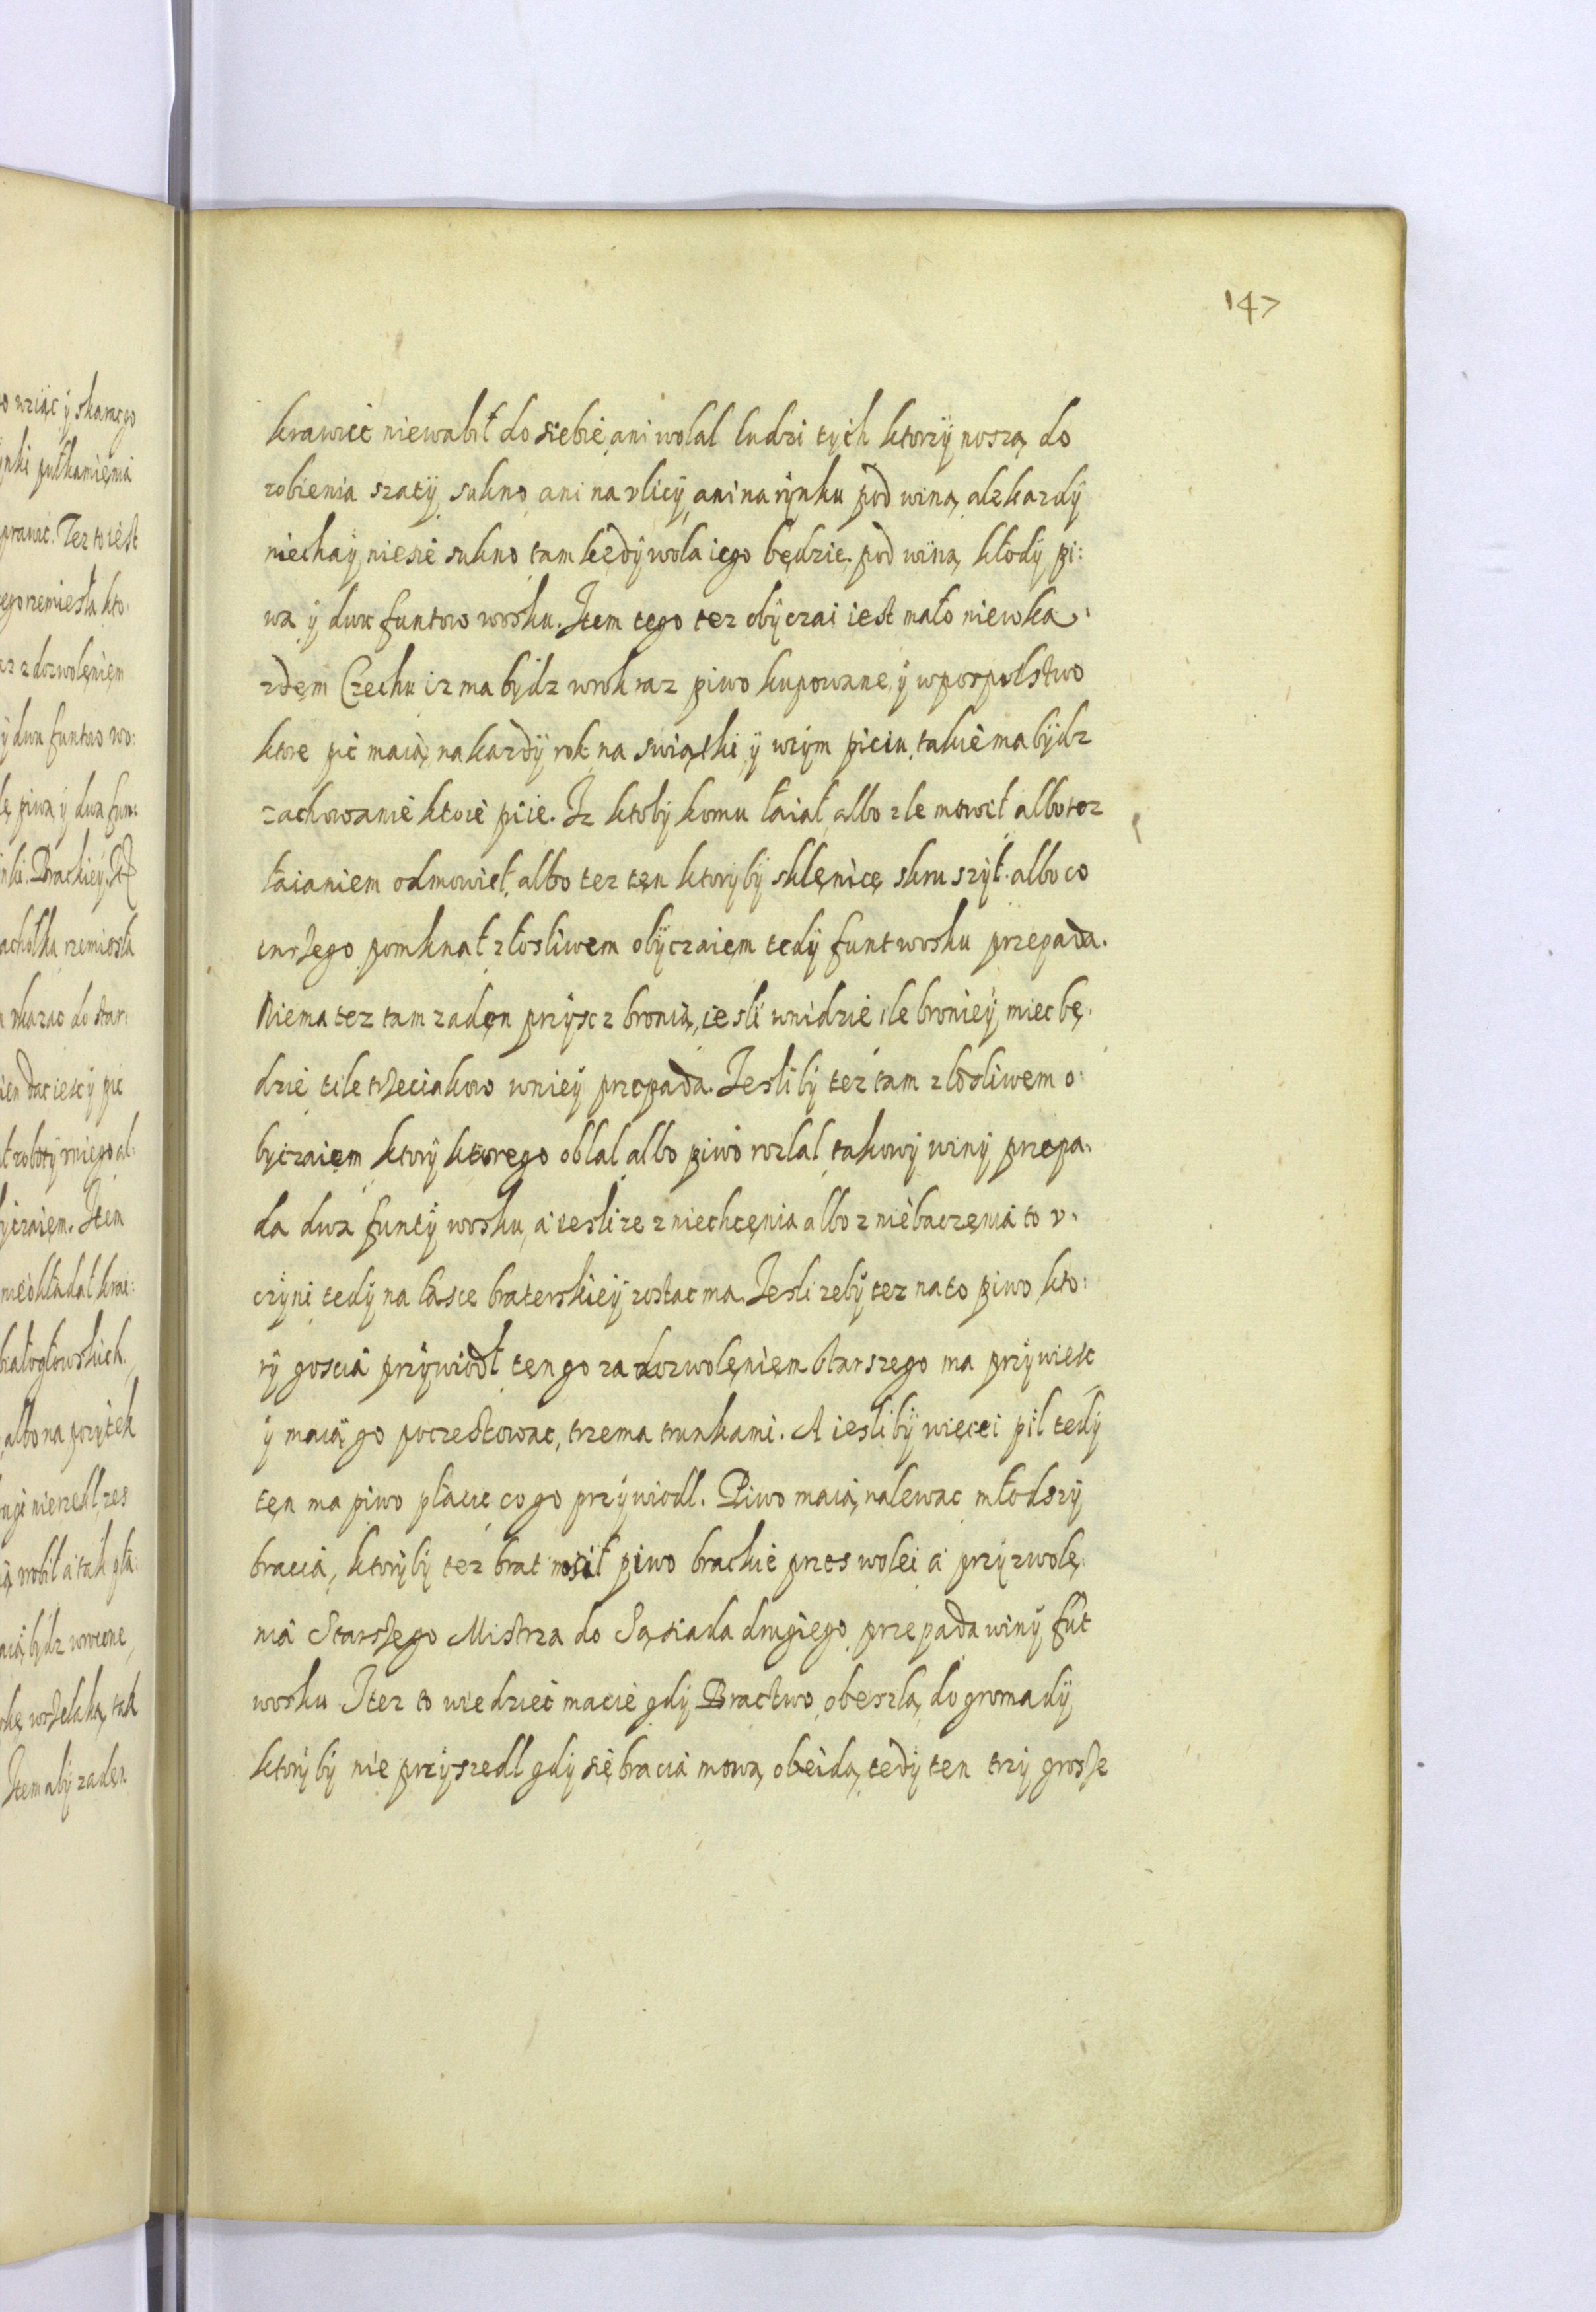 147
krawiec niewabił do siebie ani wolal ludzi tych ktorzÿ noszą do
robienia szatÿ sukno ani na vlicÿ ani na rÿnku pod winą, ale kazdÿ
niechaÿ niesie sukno tam kędÿ wola iego będzie. pod winą kłodÿ pi:
wa ÿ dwu funtow wosku. Item tego tez obÿczai iest mało niewka
zdem Czechu iz ma bÿdz wrok raz piwo kupowane, ÿ wpospolstwo
ktore pic maią, na kazdÿ rok na swiąthi, ÿ wtÿm piciu, takie ma bÿdz
zachowanie ktore pije. Iz ktobÿ komu łaiał, albo zle mowił albo toz
łaianiem odmowił, albo tez ten ktorÿbÿ sklęnice skruszÿł. albo co
inszego pomknał złosliwem obÿczaiem tedÿ funt wosku przepada.
Niema tez tam zaden przÿsc z bronią, iesli wnidzie ile broniéÿ miec bę:
dzie tile trzeciakow wnieÿ przepada. Ieslibÿ tez tam złosliwem o:
bÿczaiem ktorÿ ktorego oblal albo piwo rozlal takowÿ winÿ przepa:
da dwa funtÿ wosku, a iesli ze z niechcęnia albo z niebaczęnia to v:
czÿni tedÿ na łasce braterskieÿ zostac ma. Iesli zebÿ tez na to piwo kto:
rÿ goscia przÿwiodł ten go za dozwolęniem starszego ma przÿwiesc
ÿ maią go poczestowac, trzema trunkami. A ieslibÿ więcei pił tedÿ
ten ma piwo płacic co go przÿwiodl. Piwo maią nalewac młodszÿ
bracia, ktorÿbÿ tez brat nosił piwo brackie przes wolei a przÿzwolę
nia Starszego Mistrza do Sąsiada drugiego przepada winÿ fut
wosku Itez to wiedziec macie gdÿ Bractwo obeszlą do gromadÿ
ktorÿbÿ nie przÿszedl gdÿ się bracia mową obeidą, tedÿ ten trzÿ grosze